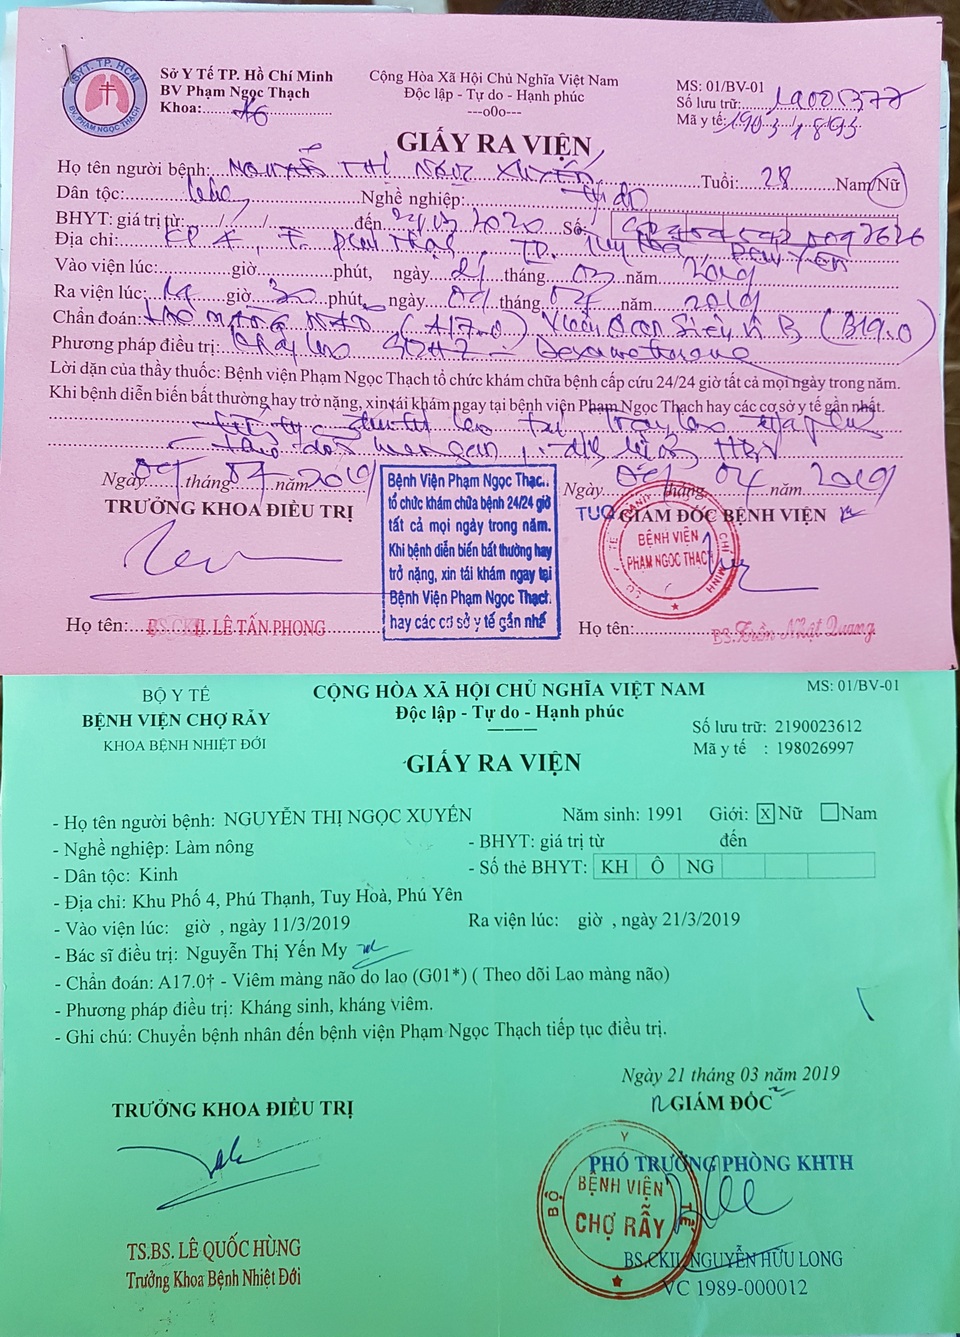 S.Y.T. TP. HCM
BV. PHẠM NGỌC THẠCH
Sở Y Tế TP. Hồ Chí Minh
BV Phạm Ngọc Thạch
Khoa:
Cộng Hòa Xã Hội Chủ Nghĩa Việt Nam
Độc lập - Tự do - Hạnh phúc
---o0o---
MS: 01/BV-01
Số lưu trữ: 19001377
Mã y tế:
GIẤY RA VIỆN
Họ tên người bệnh: NGUYỄN THỊ NGỌC XUYẾN Tuổi: 28 Nam/Nữ
Dân tộc: Nghề nghiệp: Tự do
BHYT: giá trị từ: / / đến 2020 Số:
Địa chỉ: KP 4, F. Phú Thạnh, TP. Tuy Hòa, Phú Yên
Vào viện lúc: giờ phút, ngày 21 tháng 03 năm 2019
Ra viện lúc: 14 giờ 30 phút, ngày 04 tháng 04 năm 2019
Chẩn đoán: LAO MÀNG NÃO (A17.0) Viêm gan siêu vi B (B19.0)
Phương pháp điều trị: lao
Lời dặn của thầy thuốc: Bệnh viện Phạm Ngọc Thạch tổ chức khám chữa bệnh cấp cứu 24/24 giờ tất cả mọi ngày trong năm.
Khi bệnh diễn biến bất thường hay trở nặng, xin tái khám ngay tại bệnh viện Phạm Ngọc Thạch hay các cơ sở y tế gần nhất.
điều trị lao tại
men gan, HBV
Ngày 04 tháng 04 năm 2019
Ngày 04 tháng 04 năm 2019
TRƯỞNG KHOA ĐIỀU TRỊ
TUQ GIÁM ĐỐC BỆNH VIỆN
Bệnh Viện Phạm Ngọc Thạc..
tổ chức khám chữa bệnh 24/24 giờ
tất cả mọi ngày trong năm.
Khi bệnh diễn biến bất thường hay
trở nặng, xin tái khám ngay tại
Bệnh Viện Phạm Ngọc Thạch
hay các cơ sở y tế gần nhấ
BỆNH VIỆN
PHẠM NGỌC THẠCH
Họ tên: BS.CKII. LÊ TẤN PHONG
Họ tên: BS. Trần Nhật Quang
BỘ Y TẾ
BỆNH VIỆN CHỢ RẪY
KHOA BỆNH NHIỆT ĐỚI
CỘNG HÒA XÃ HỘI CHỦ NGHĨA VIỆT NAM
Độc lập - Tự do - Hạnh phúc
MS: 01/BV-01
Số lưu trữ: 2190023612
Mã y tế : 198026997
GIẤY RA VIỆN
- Họ tên người bệnh: NGUYỄN THỊ NGỌC XUYẾN Năm sinh: 1991 Giới: X Nữ Nam
- Nghề nghiệp: Làm nông - BHYT: giá trị từ đến
- Dân tộc: Kinh - Số thẻ BHYT: KH Ô NG
- Địa chỉ: Khu Phố 4, Phú Thạnh, Tuy Hoà, Phú Yên
- Vào viện lúc: giờ , ngày 11/3/2019 Ra viện lúc: giờ , ngày 21/3/2019
- Bác sĩ điều trị: Nguyễn Thị Yến My
- Chẩn đoán: A17.0† - Viêm màng não do lao (G01*) ( Theo dõi Lao màng não)
- Phương pháp điều trị: Kháng sinh, kháng viêm.
- Ghi chú: Chuyển bệnh nhân đến bệnh viện Phạm Ngọc Thạch tiếp tục điều trị.
Ngày 21 tháng 03 năm 2019
TRƯỞNG KHOA ĐIỀU TRỊ
GIÁM ĐỐC
PHÓ TRƯỞNG PHÒNG KHTH
BỘ Y TẾ
BỆNH VIỆN
CHỢ RẪY
TS.BS. LÊ QUỐC HÙNG
Trưởng Khoa Bệnh Nhiệt Đới
BS.CKII. NGUYỄN HỮU LONG
VC 1989-000012